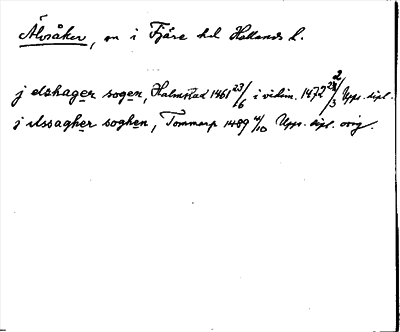 Älvsåker, sn i Fjäre hd Hallands l.
j elshager sogen, Halmstad 1461 23/6 i vidim. 1472 28/3 Upps. dipl.
j elssagher soghen, Tommarp 1489 4/10 Upps. dipl. orig.